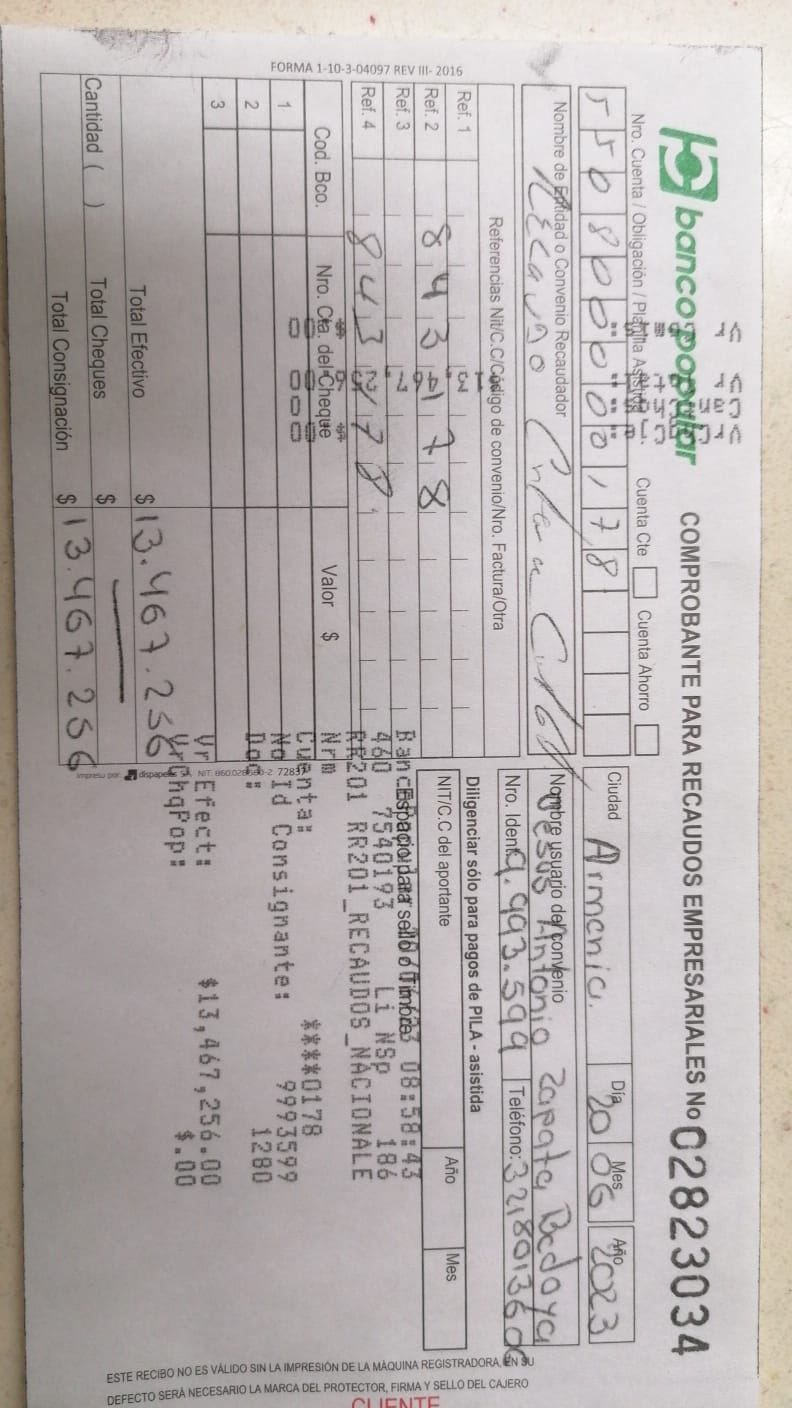 banco popular
COMPROBANTE PARA RECAUDOS EMPRESARIALES No 02823034
Nro. Cuenta / Obligación / Planilla Asistida
Cuenta Cte
Cuenta Ahorro
Ciudad Armenia.
Día 20 Mes 06 Año 2023
Nombre de Entidad o Convenio Recaudador
Recaudo
Nombre usuario del convenio
Jesus Antonio Zapata Bedoya
Nro. Ident. 9.993.599
Teléfono: 3218013606
Referencias Nit/C.C/Código de convenio/Nro. Factura/Otra
Diligenciar sólo para pagos de PILA - asistida
Ref. 1
Ref. 2 843
Ref. 3
Ref. 4 843
NIT/C.C del aportante
Año
Mes
Espacio para sello o Timbre
08:58:43
460 7540193 Li NSp 186
RR201 RR201_RECAUDOS_NACIONALE
Nrm
Cuenta: ****0178
No Id Consignante: 9993599
Doc: 1280
Vr Efect: $13,467,256.00
VrChqPop: $.00
Cod. Bco.
Nro. Cta. del Cheque
Valor $
1
2
3
Total Efectivo $ 13.467.256
Cantidad ( ) Total Cheques $
Total Consignación $ 13.467.256
FORMA 1-10-3-04097 REV III- 2016
Impreso por: dispapeles
ESTE RECIBO NO ES VÁLIDO SIN LA IMPRESIÓN DE LA MÁQUINA REGISTRADORA, EN SU
DEFECTO SERÁ NECESARIO LA MARCA DEL PROTECTOR, FIRMA Y SELLO DEL CAJERO
CLIENTE